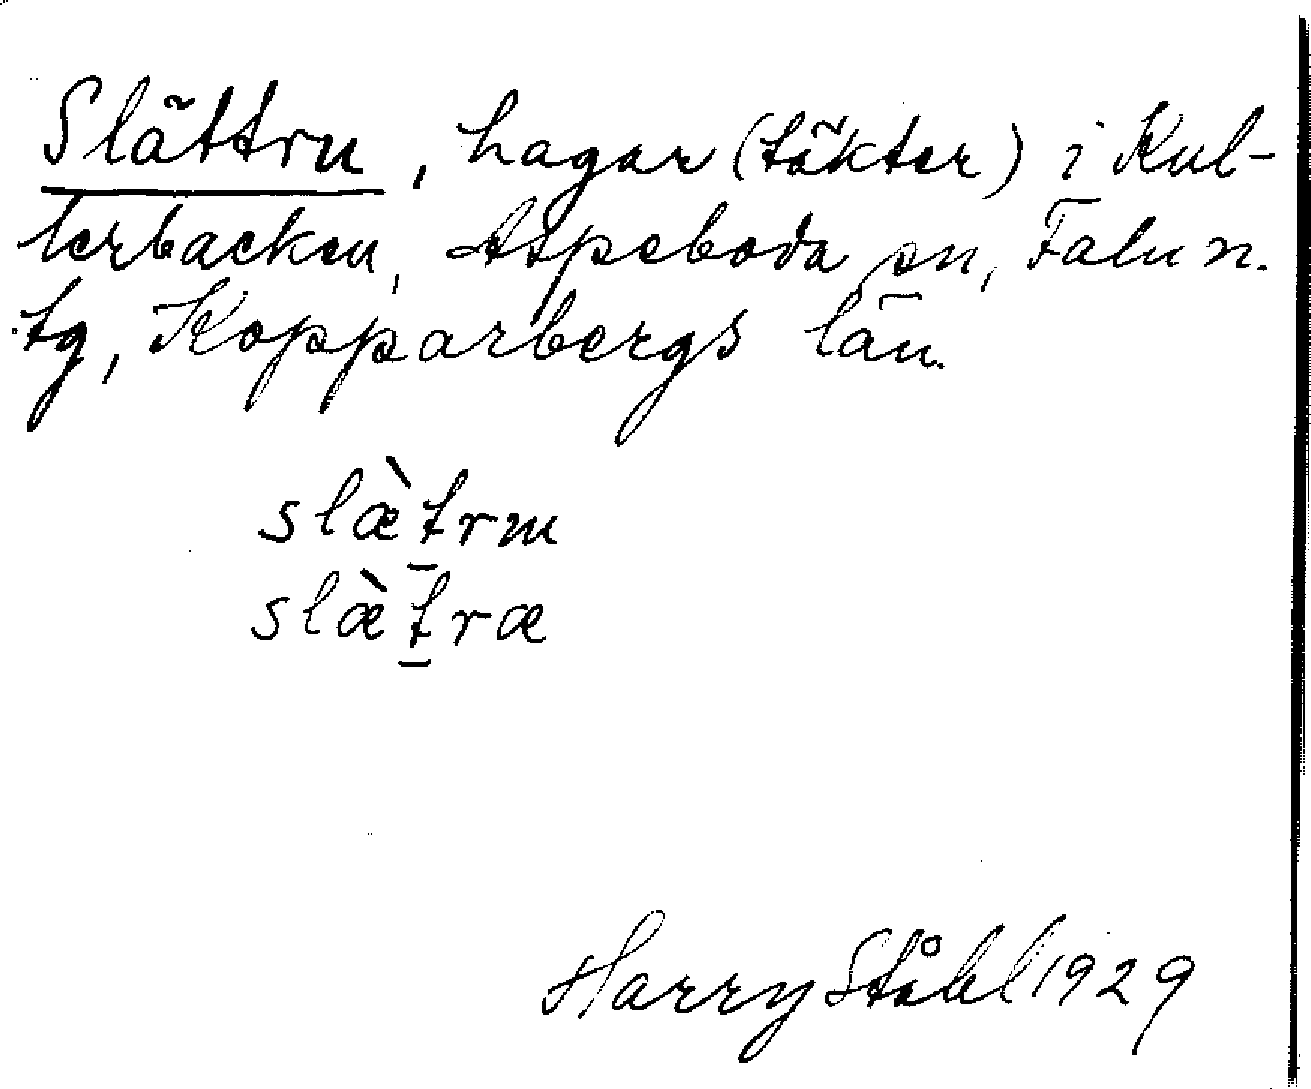 Slättru, hagar (täkter) i Kul-
lerbacken, Aspeboda sn, Falu n.
tg, Kopparbergs län.
slæ̀t̲rɯ
slæ̀t̲ræ
Harry Ståhl 1929